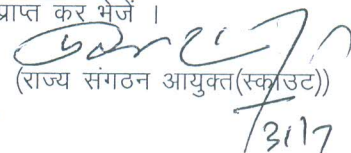 प्राप्त कर भेजें ।
(राज्य संगठन आयुक्त(स्काउट))
31/7